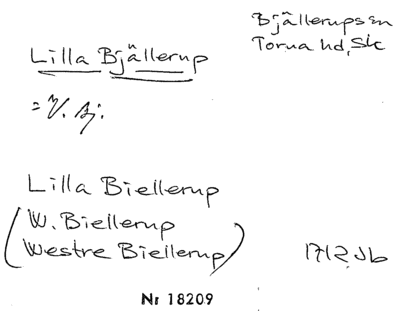 Lilla Bjällerup
Bjällerups sn
Torna hd, Sk
= V. Bj.
Lilla Biellerup
(W. Biellerup
Westre Biellerup)
1712 Jb
Nr 18209